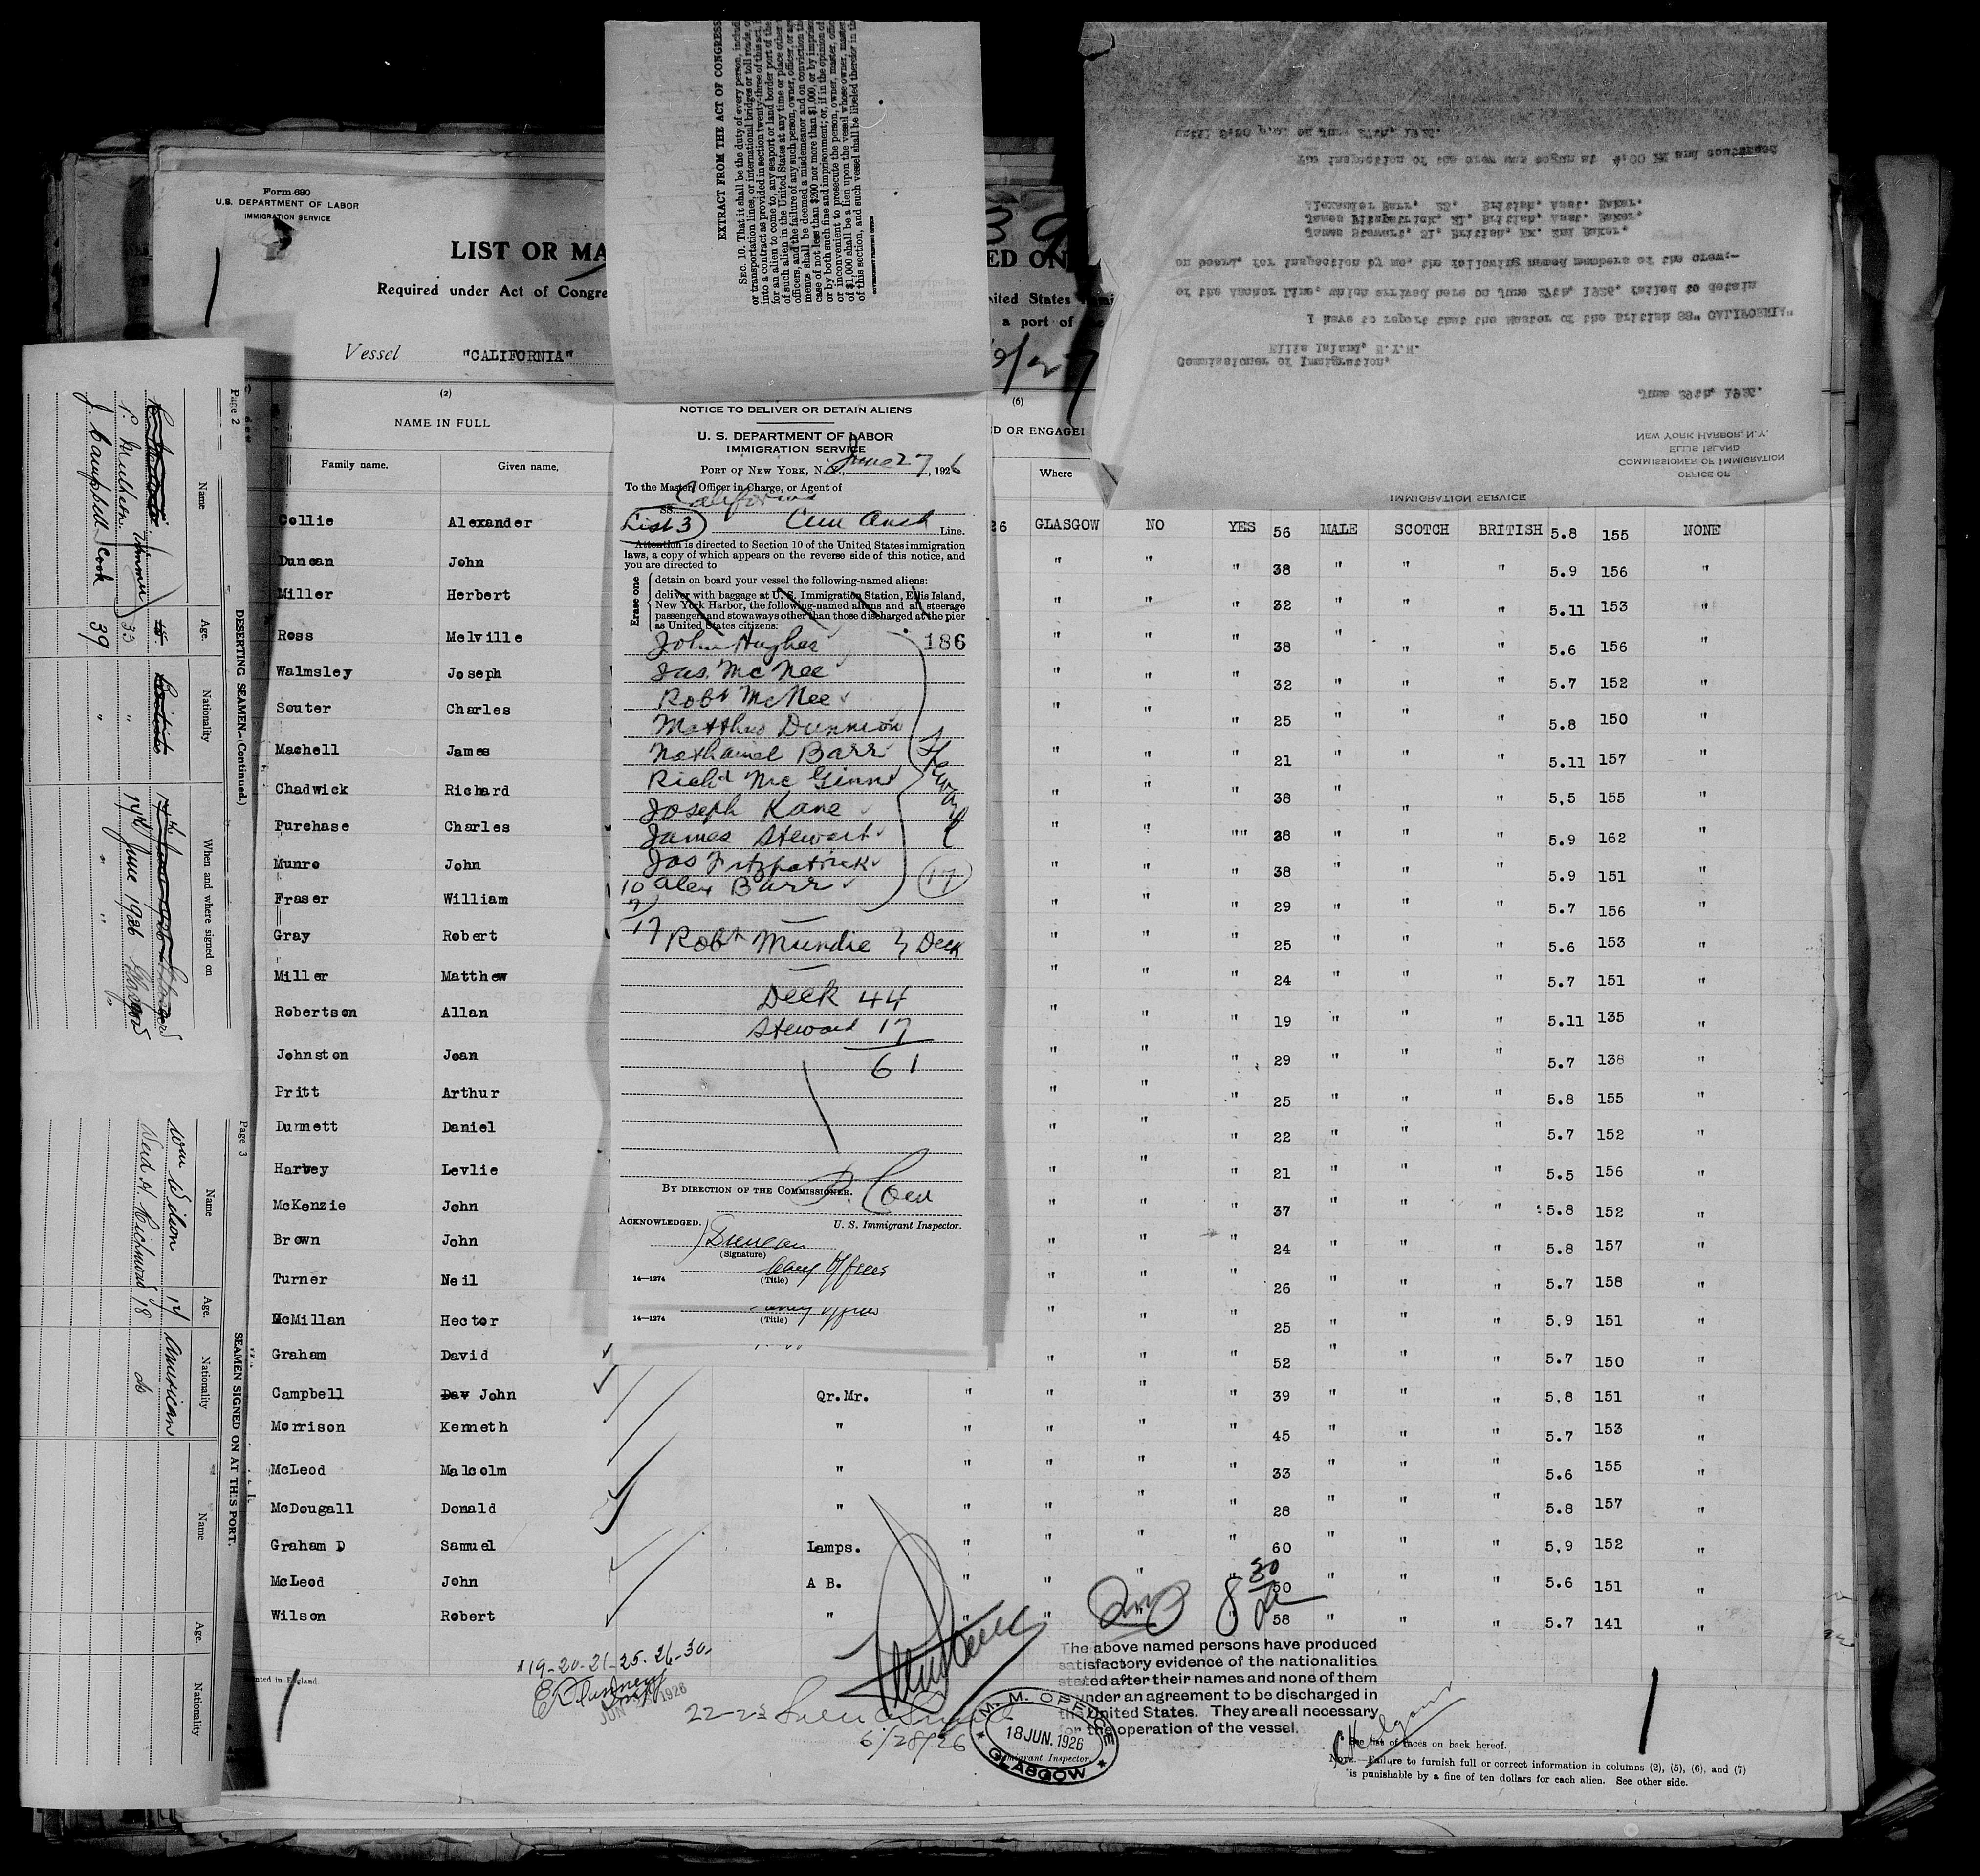 Form 680
U.S. DEPARTMENT OF LABOR
IMMIGRATION SERVICE
LIST OR MA
ED ON
Required under Act of Congre
ited States
a port of
Vessel "CALIFORNIA"
(2)
NAME IN FULL
Family name. Given name.
(6)
D OR ENGAGE
Where
Collie Alexander 26 GLASGOW NO YES 56 MALE SCOTCH BRITISH 5.8 155 NONE
Duncan John " " " 38 " " " 5.9 156 "
Miller Herbert " " " 32 " " " 5.11 153 "
Ross Melville " " " 38 " " " 5.6 156 "
Walmsley Joseph " " " 32 " " " 5.7 152 "
Souter Charles " " " 25 " " " 5.8 150 "
Machell James " " " 21 " " " 5.11 157 "
Chadwick Richard " " " 38 " " " 5,5 155 "
Purchase Charles " " "" 38 " " " 5.9 162 "
Munro John " " " 38 " " " 5.9 151 "
Fraser William " " " 29 " " " 5.7 156 "
Gray Robert " " " 25 " " " 5.6 153 "
Miller Matthew " " " 24 " " " 5.7 151 "
Robertson Allan " " " 19 " " " 5.11 135 "
Johnston Joan " " " 29 " " " 5.7 138 "
Pritt Arthur " " " 25 " " " 5.8 155 "
Dunnett Daniel " " " 22 " " " 5.7 152 "
Harvey Levlie " " " 21 " " " 5.5 156 "
McKenzie John " " " 37 " " " 5.8 152 "
Brown John " " " 24 " " " 5.8 157 "
Turner Neil " " " 26 " " " 5.7 158 "
McMillan Hector " " " 25 " " " 5.9 151 "
Graham David " " " 52 " " " 5.7 150 "
Campbell Dav John Qr.Mr. " " " " 39 " " " 5,8 151 "
Morrison Kenneth " " " " " 45 " " " 5.7 153 "
McLeod Malcolm " " " " " 33 " " " 5.6 155 "
McDougall Donald " " " " " 28 " " " 5.8 157 "
Graham D Samuel Lamps. " " " " 60 " " " 5,9 152 "
McLeod John A B. " " " " 50 " " " 5.6 151 "
Wilson Robert " " " " " 58 " " " 5.7 141 "
8 30
#19-20-21-25-26-30-
JUN 1926
22-23
6/28/26
The above named persons have produced
satisfactory evidence of the nationalities
stated after their names and none of them
under an agreement to be discharged in
the United States. They are all necessary
for the operation of the vessel.
M. M. OFFICE
18 JUN. 1926
GLASGOW
Immigrant Inspector.
See list of races on back hereof.
NOTE.—Failure to furnish full or correct information in columns (2), (5), (6), and (7)
is punishable by a fine of ten dollars for each alien. See other side.
nted in England
EXTRACT FROM THE ACT OF CONGRESS
SEC. 10. That it shall be the duty of every person, includ
or transportation lines, or international bridges or toll roads, o
into a contract as provided in section twenty-three of this act,
for an alien to come to, any seaport or land border port of the
of such alien in the United States at any time or place other
officers, and the failure of any such person, owner, officer, or ag
ments shall be deemed a misdemeanor and on conviction th
case of not less than $200 nor more than $1,000, or by impris
or by both such fine and imprisonment; or, if in the opinion of
or inconvenient to prosecute the person, owner, master, offic
of $1,000 shall be a lien upon the vessel whose owner, master
of this section, and such vessel shall be libeled therefor in th
GOVERNMENT PRINTING OFFICE
NOTICE TO DELIVER OR DETAIN ALIENS
U. S. DEPARTMENT OF LABOR
IMMIGRATION SERVICE
PORT OF NEW YORK, N. Y., June 27, 1926
To the Master, Officer in Charge, or Agent of
SS. California
List 3 Line.
Attention is directed to Section 10 of the United States immigration
laws, a copy of which appears on the reverse side of this notice, and
you are directed to
Erase one
detain on board your vessel the following-named aliens:
deliver with baggage at U. S. Immigration Station, Ellis Island,
New York Harbor, the following-named aliens and all steerage
passengers and stowaways other than those discharged at the pier
as United States citizens:
John Hughes 186
Jas. McNee
Robt McNee
Matthew Dunnion
Nathaniel Barr
Richd McGinn
Joseph Kane
James Stewart
Jas Fitzpatrick
10 Alex Barr
Steward
17
7
17
Robt Mundie } Deck
Deck 44
Steward 17
61
BY DIRECTION OF THE COMMISSIONER.
U. S. Immigrant Inspector.
ACKNOWLEDGED.
Duncan
(Signature)
Officer
14—1274 (Title)
14—1274 (Title)
IMMIGRATION SERVICE
OFFICE OF
COMMISSIONER OF IMMIGRATION
ELLIS ISLAND
NEW YORK HARBOR, N.Y.
June 29th, 1926.
Commissioner of Immigration,
Ellis Island, N.Y.H.
I have to report that the Master of the British SS" CALIFORNIA"
of the Anchor Line, which arrived here on June 27th, 1926, failed to detain
on board, for inspection by me, the following named members of the crew:-
James Stewart, 21, British, Ex. 2nd Baker.
James Fitzpatrick, 21, British, Asst. Baker.
Alexander Barr, 22, British, Asst. Baker.
The inspection of the crew was begun at 4:00 PM and continued
until 8,30 p.m. on June 27th, 1926.
Page 2
DESERTING SEAMEN.—(Continued.)
Name Age. Nationality When and where signed on
P. Trimmer 33 " 17th June 1926 Glasgow
J. Campbell Cook 39 " " "
Page 3
SEAMEN SIGNED ON AT THIS PORT.
Name Age. Nationality Name Age. Nationality
Wm Wilson 17 American
H. Richmond 18 do